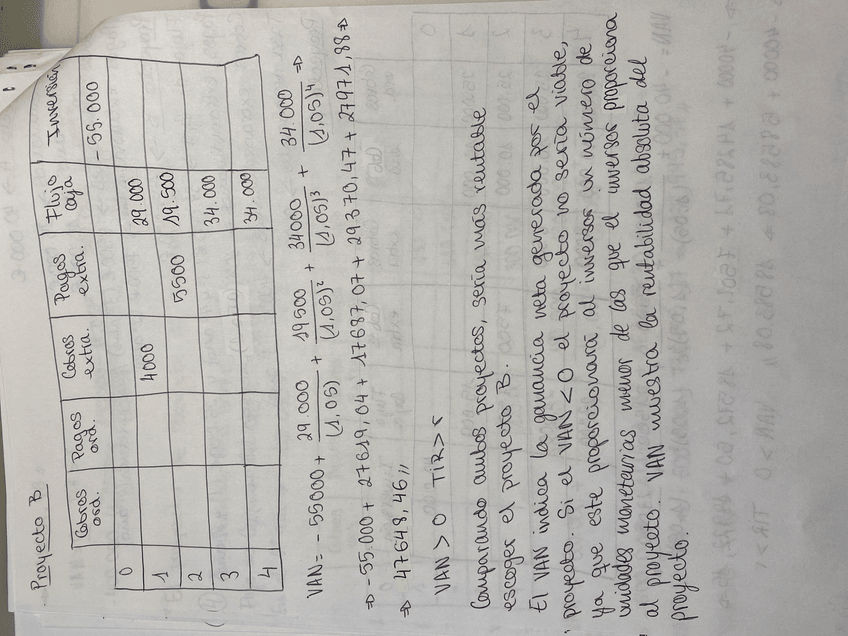 Proyecto B
Cobros ord. Pagos ord. Cobros extra. Pagos extra. Flujo caja Inversión
0 -55.000
1 4000 29.000
2 5500 19.500
3 34.000
4 34.000
VAN = -55000 + 29.000/(1,05) + 19500/(1,05)² + 34000/(1,05)³ + 34.000/(1,05)⁴ ⇒
⇒ -55.000 + 27619,04 + 17687,07 + 29370,47 + 27971,88 ⇒
⇒ 47648,46 //
VAN > 0 TIR > r
Comparando ambos proyectos, sería más rentable
escoger el proyecto B.
El VAN indica la ganancia neta generada por el
proyecto. Si el VAN < 0 el proyecto no sería viable,
ya que este proporcionará al inversor un número de
unidades monetarias menor de las que el inversor proporciona
al proyecto. VAN muestra la rentabilidad absoluta del
proyecto.